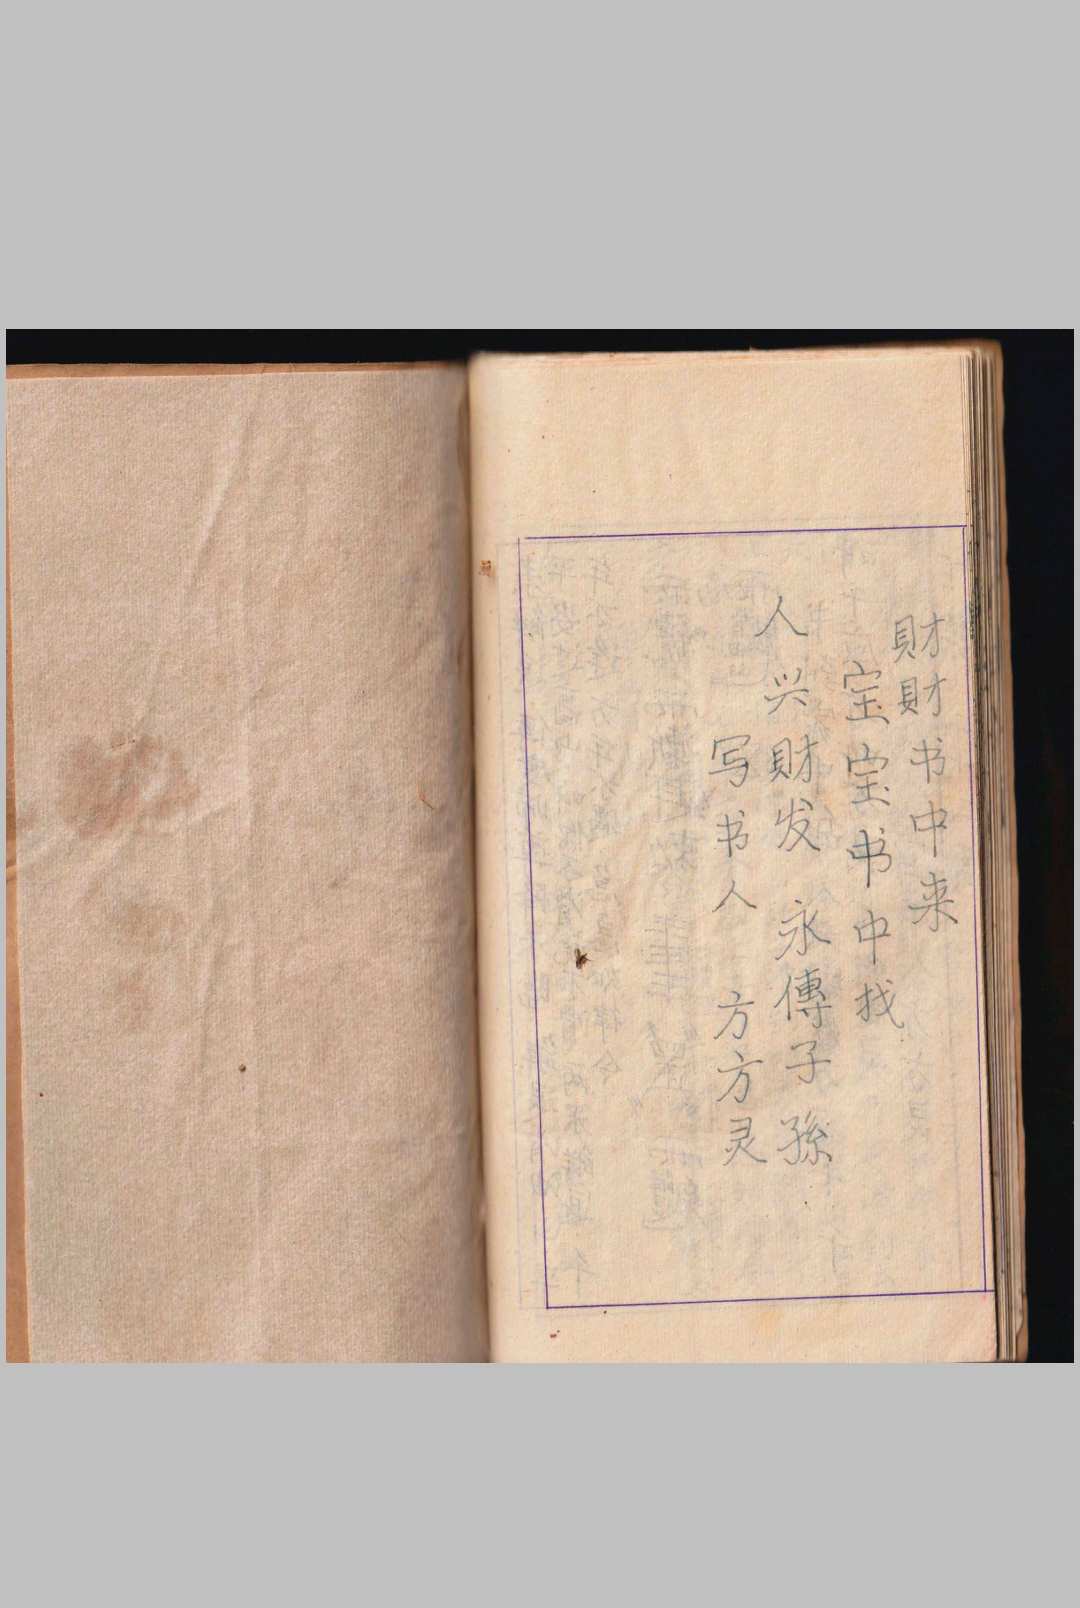 財財书中来
宝宝书中找
人兴財发永傳子孫
写书人 方方灵